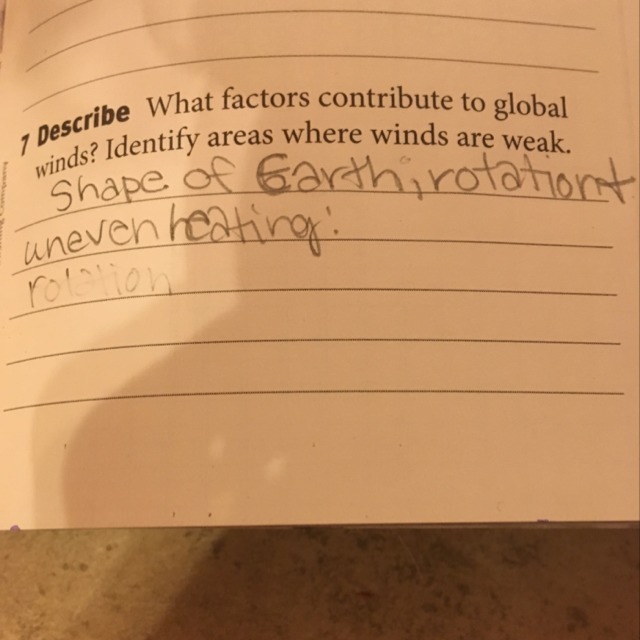 7 Describe What factors contribute to global
winds? Identify areas where winds are weak.
Shape of Earth, rotation +
uneven heating.
rotation